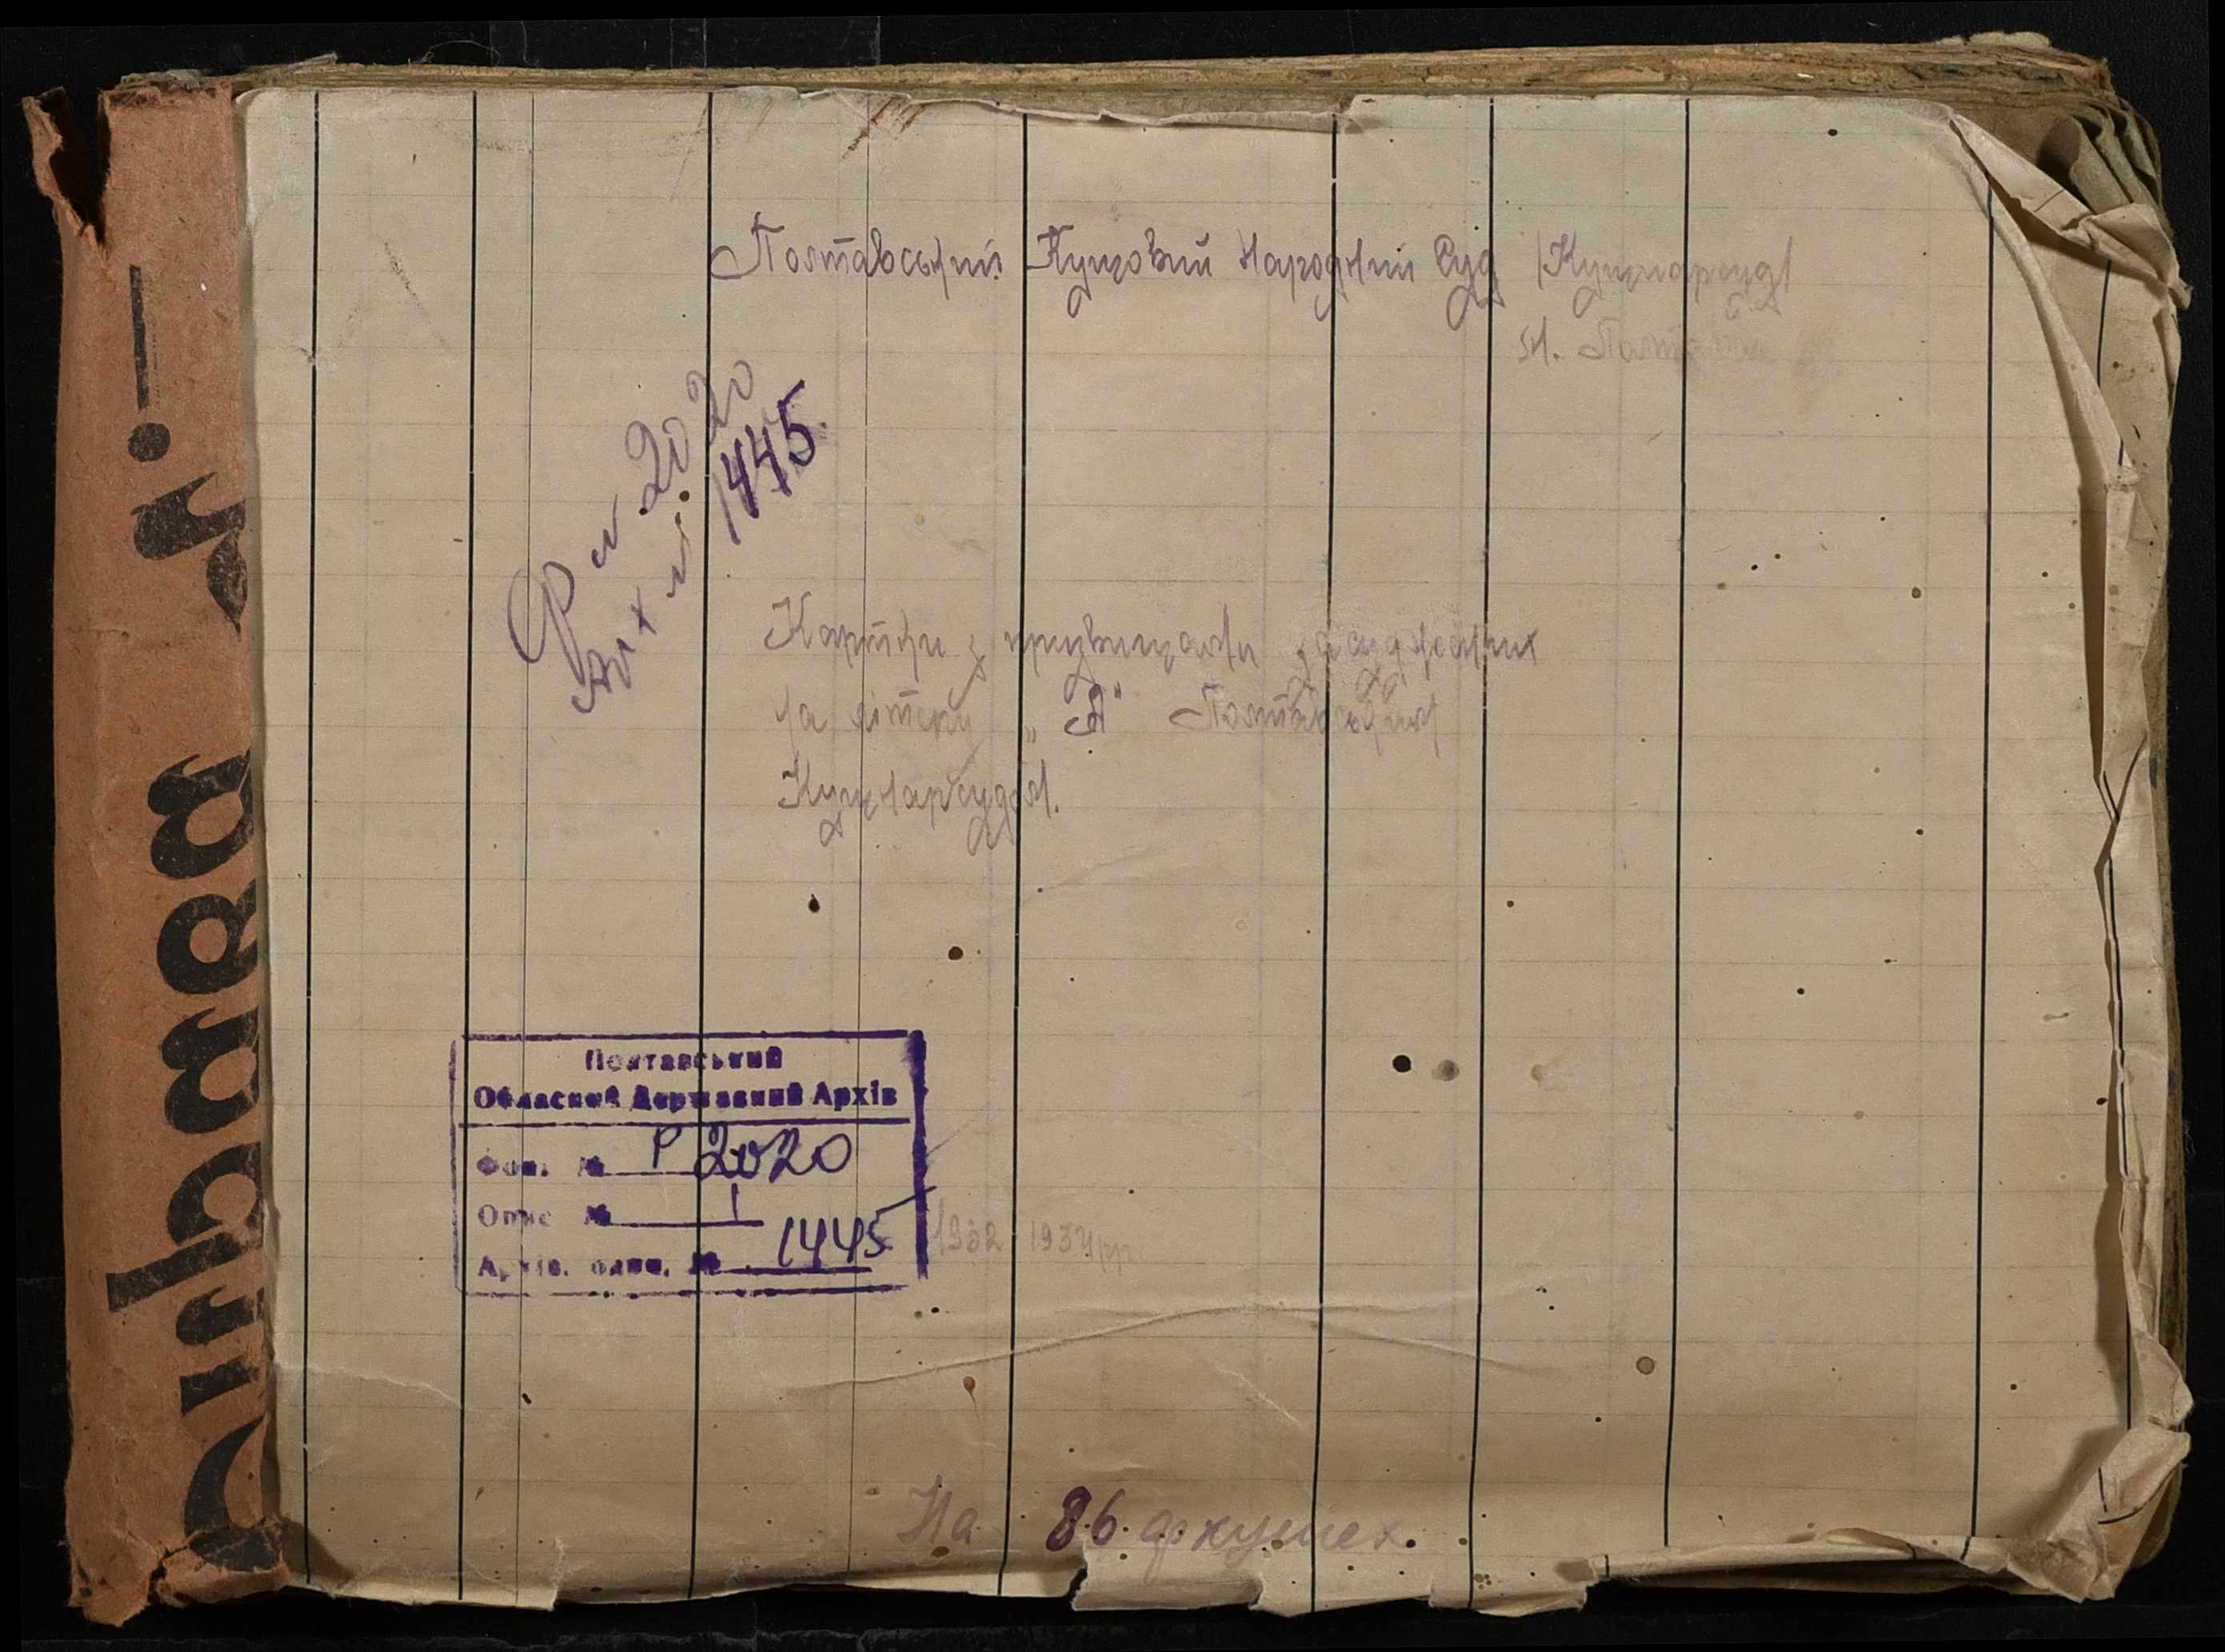 Полтавський Кущовий Народний Суд /Кущнарсуд/
м. Полтава
Ф № 2020
Арх № 1445.
Картки з призвищами засуджених
на літеру „А" Полтавським
Кущнарсудом.
Полтавський
Обласний Державний Архів
Фон. № Р 2020
Опис № 1
Архів. один. № 1445
1932 - 1934 рр.
На 86 аркушех.